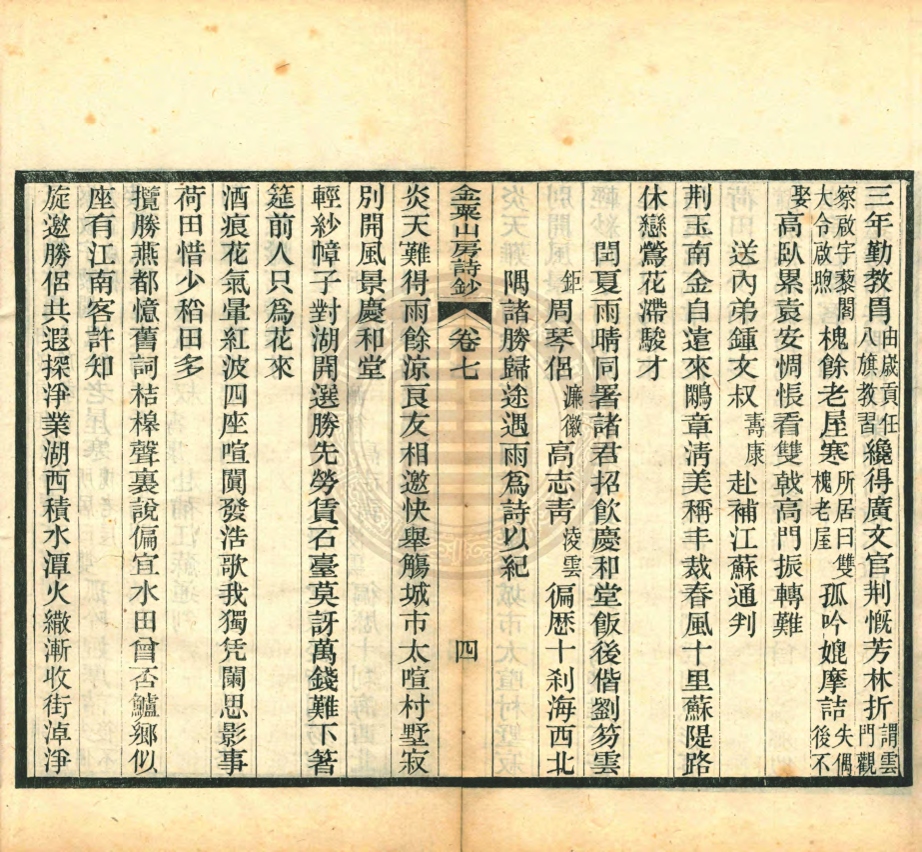 三年勤教胄由歲貢任八旗教習纔得廣文官荆慨芳林折謂雲門觀
察啟宇藜閣大令啟煦槐餘老屋寒所居曰雙槐老屋孤吟媲摩詰失偶後不
娶高臥累袁安惆悵看雙戟高門振轉難
送內弟鍾文叔壽康赴補江蘇通判
荆玉南金自遠來鷴章淸美稱丰裁春風十里蘇隄路
休戀鶯花滯駿才
閏夏雨晴同署諸君招飲慶和堂飯後偕劉笏雲
鉅周琴侶濂徽高志靑淩雲徧歷十刹海西北
隅諸勝歸途遇雨爲詩以紀
金粟山房詩鈔 卷七 四
炎天難得雨餘涼良友相邀快舉觴城市太喧村墅寂
別開風景慶和堂
輕紗幛子對湖開選勝先勞賃石臺莫訝萬錢難下箸
筵前人只爲花來
酒痕花氣暈紅波四座喧闐發浩歌我獨凭闌思影事
荷田惜少稻田多
攬勝燕都憶舊詞桔槔聲裏說偏宜水田曾否鱸鄉似
座有江南客許知
旋邀勝侶共遐探淨業湖西積水潭火繖漸收街淖淨